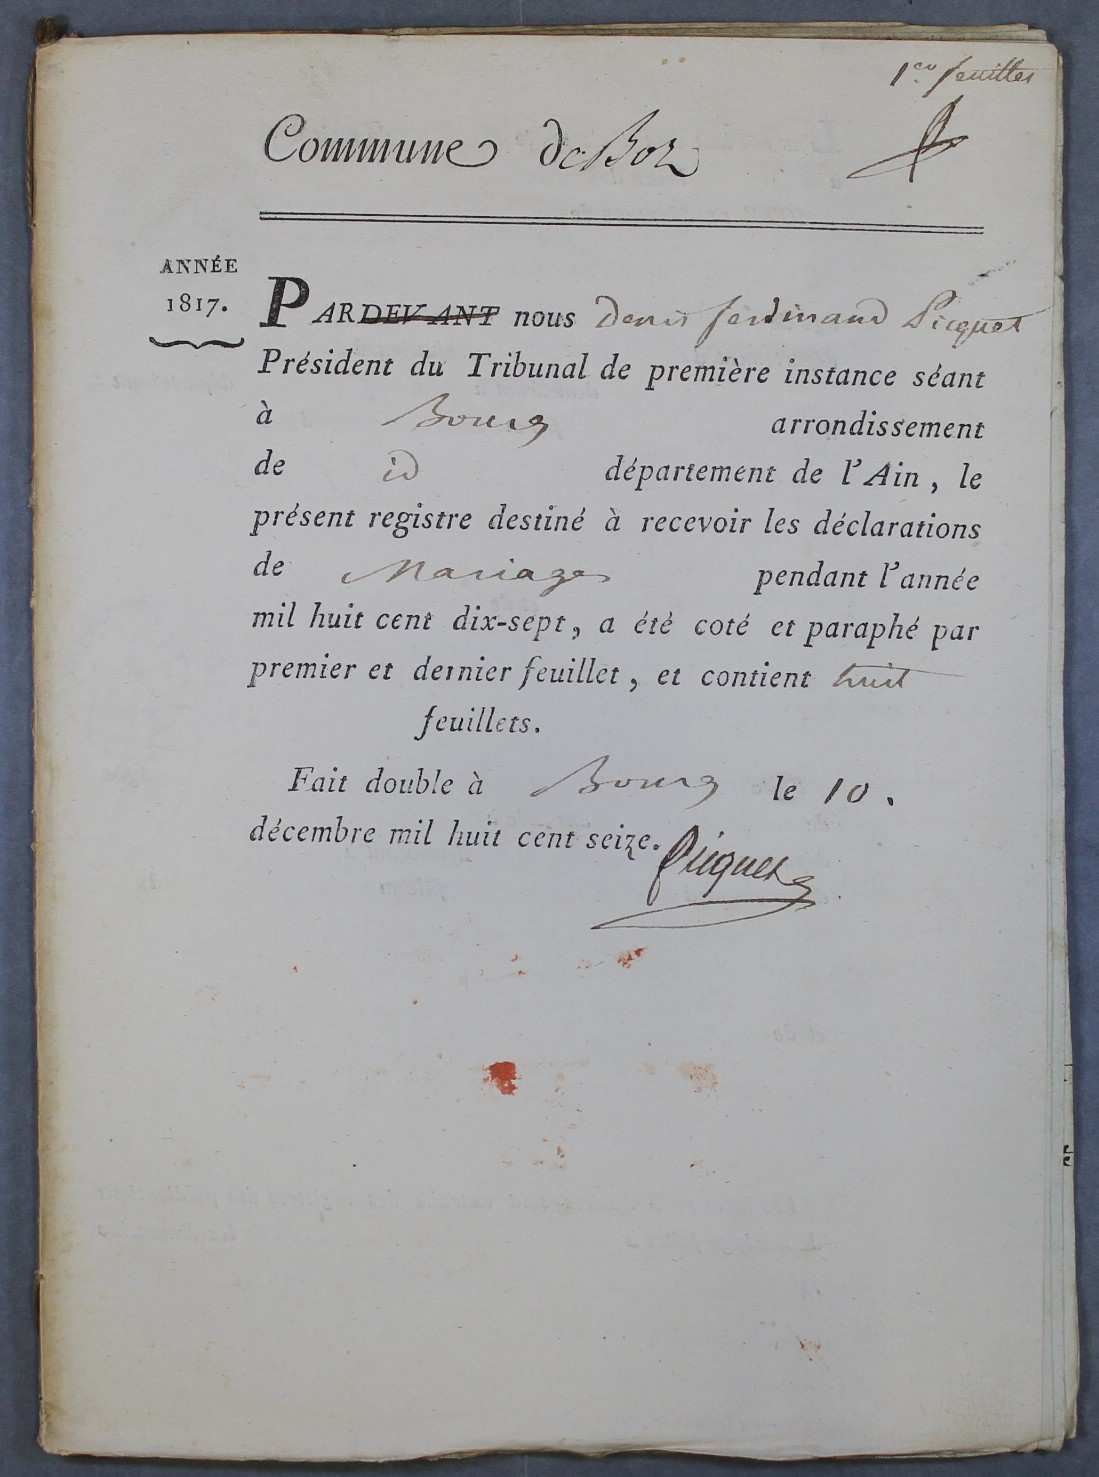 1er feuillet
Commune de Boz
ANNÉE
1817.
PARDEVANT nous Denis ferdinand Picquet
Président du Tribunal de première instance séant
à Bourg arrondissement
de id département de l'Ain, le
présent registre destiné à recevoir les déclarations
de Mariages pendant l'année
mil huit cent dix-sept, a été coté et paraphé par
premier et dernier feuillet, et contient huit
feuillets.
Fait double à Bourg le 10.
décembre mil huit cent seize.
Picquet